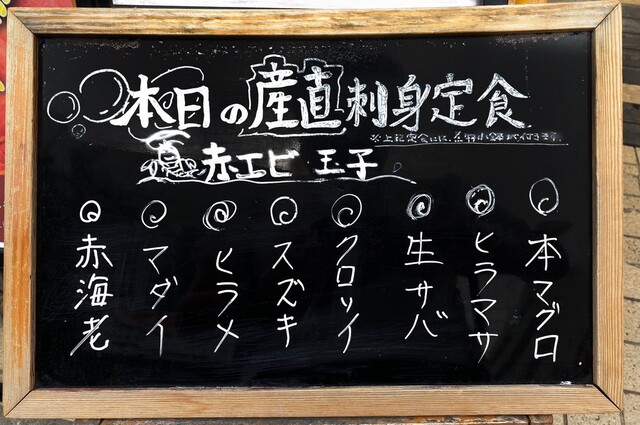 本日の産直刺身定食
※上記定食には、付きます。
赤エビ 玉子
◎本マグロ
◎ヒラマサ
◎生サバ
◎クロソイ
◎スズキ
◎ヒラメ
◎マダイ
◎赤海老